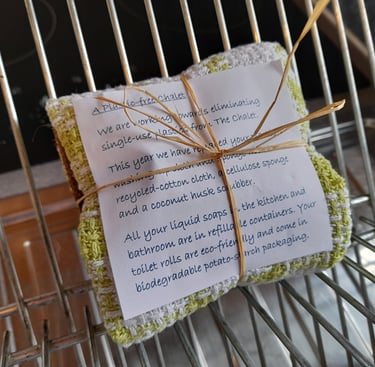 A Plastic-free Chalet
We are working towards eliminating
single-use plastic from The Chalet.
This year we have replaced your
washing
recycled-cotton cloth, a cellulose sponge
and a coconut husk scrubber.
All your liquid soaps in the kitchen and
bathroom are in refillable containers. Your
toilet rolls are eco-friendly and come in
biodegradable potato-starch packaging.